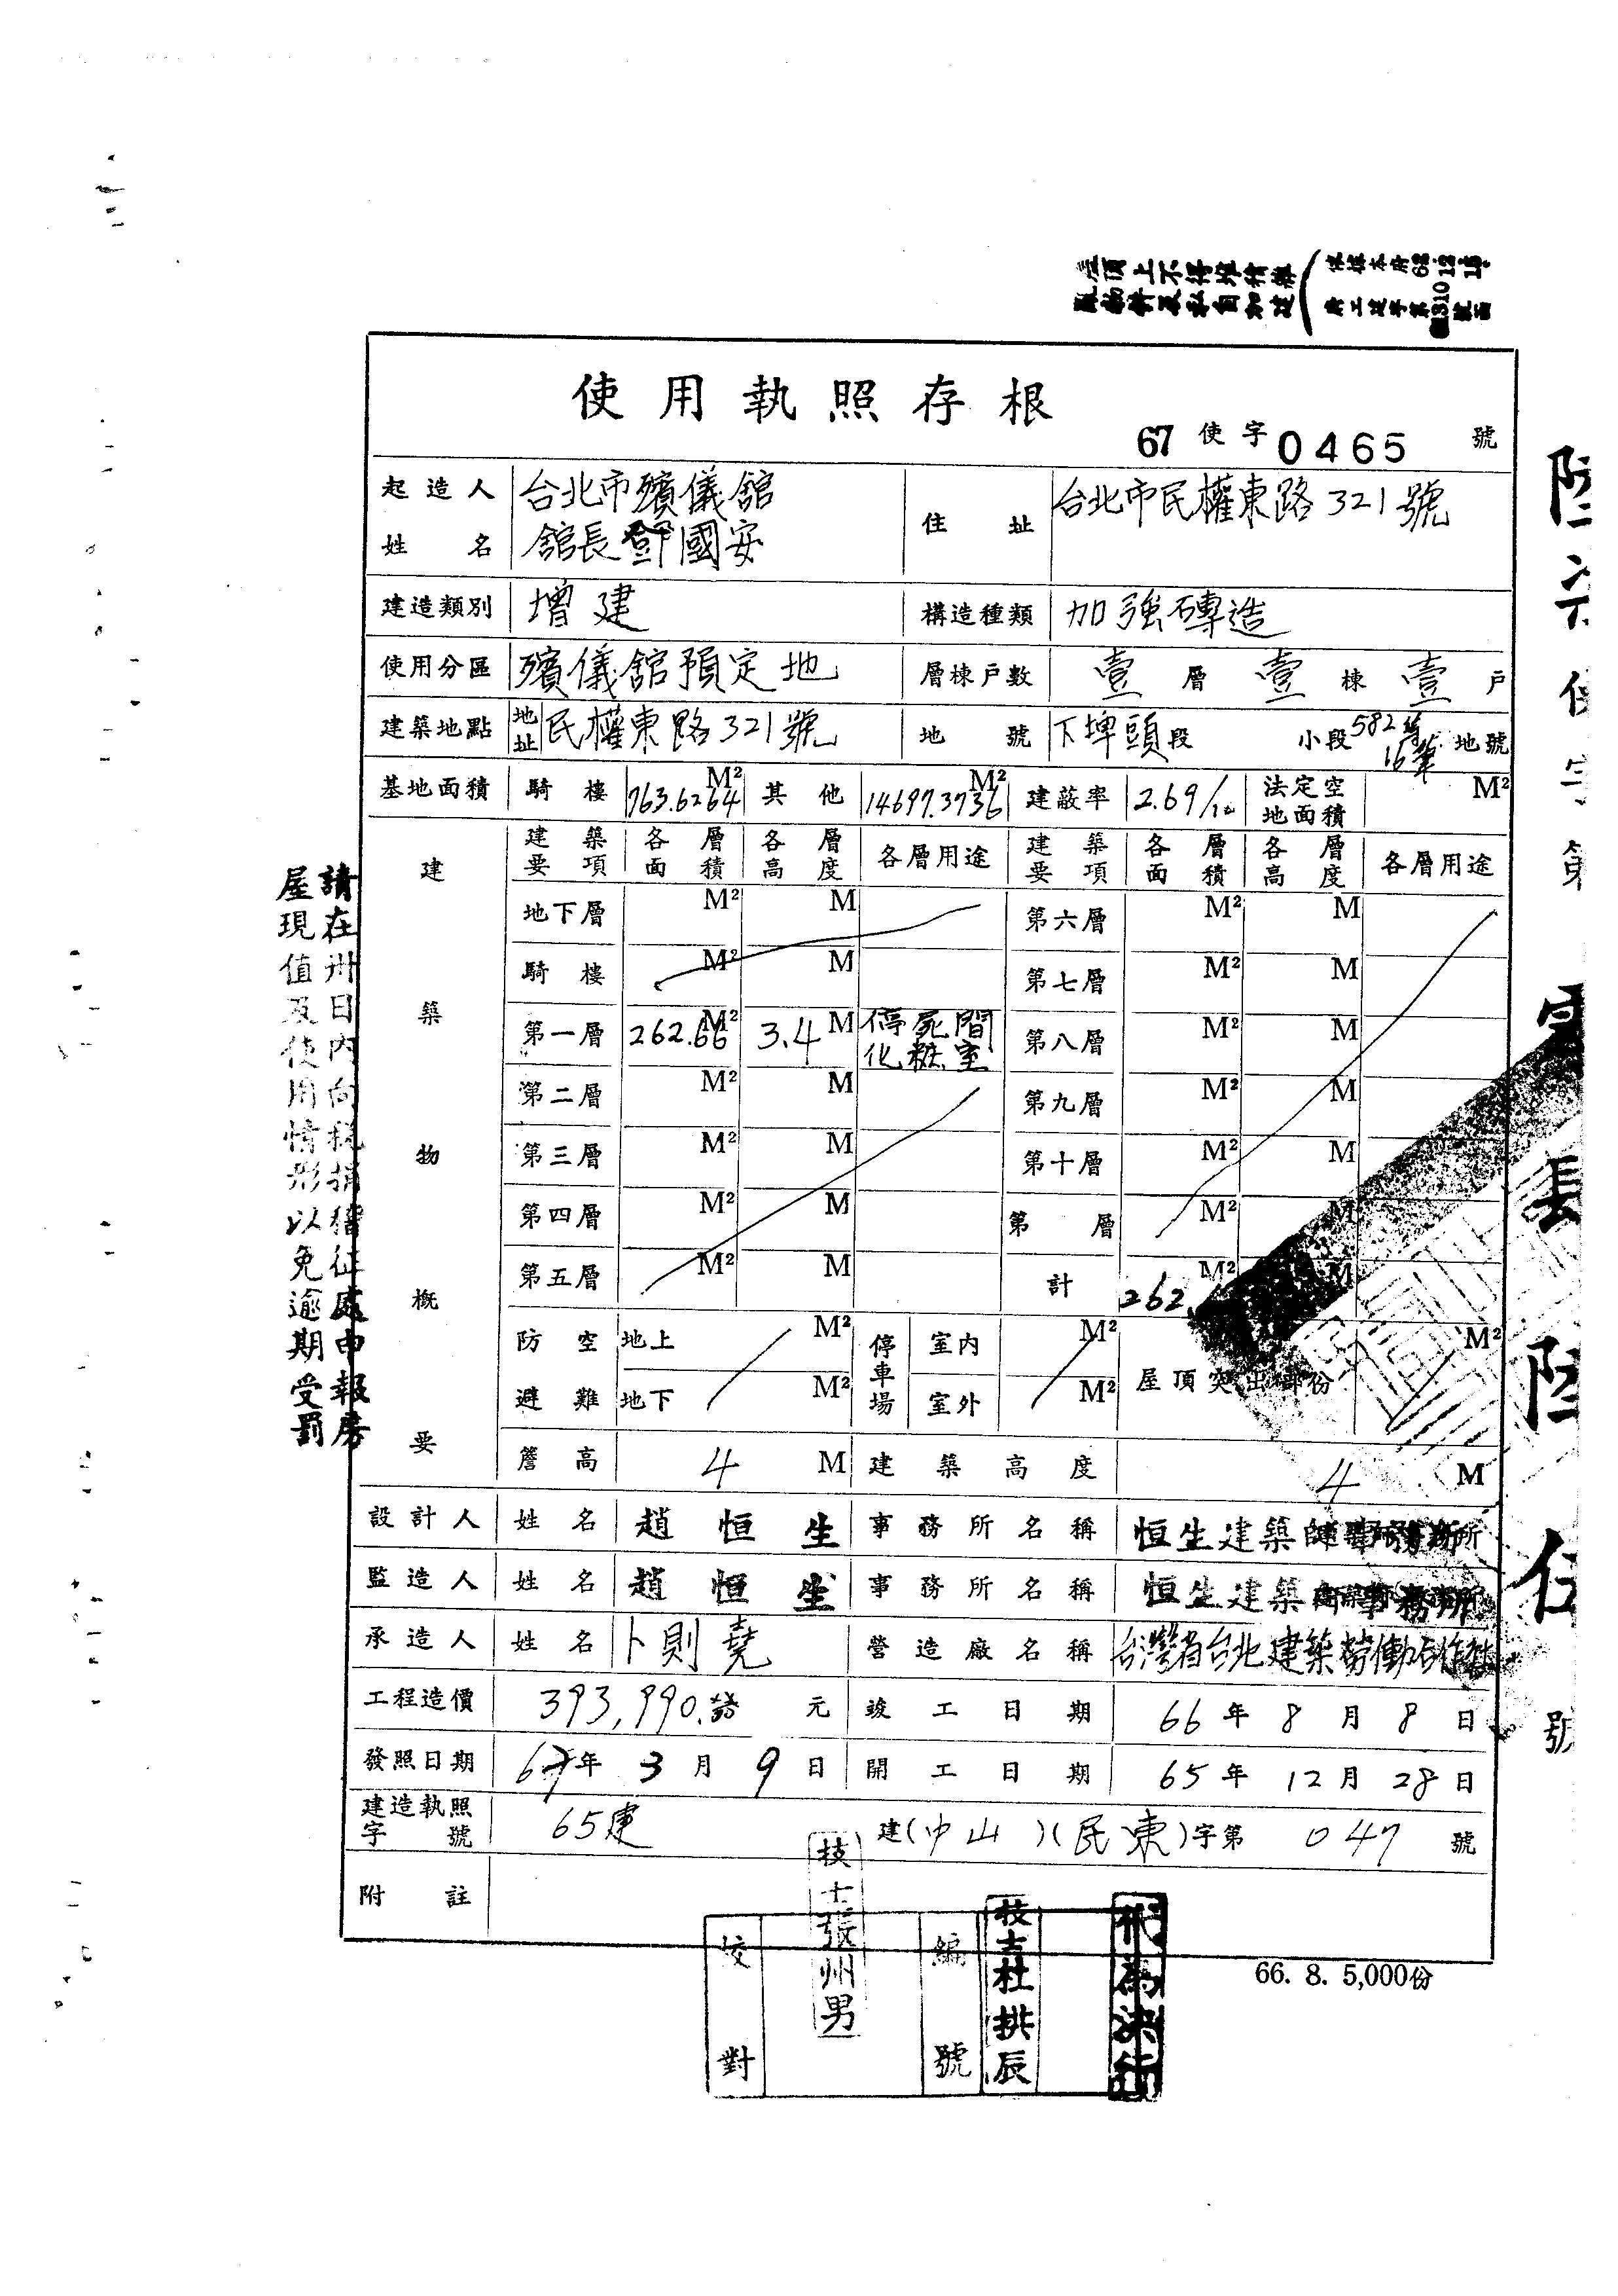 使用執照存根
67 使字 0465 號
起造人姓名 台北市殯儀舘 舘長鄧國安 住址 台北市民權東路321號
建造類別 增建 構造種類 加強磚造
使用分區 殯儀舘預定地 層棟戶數 壹層壹棟壹戶
建築地點 地址 民權東路321號 地號 下埤頭段 小段 582等16筆 地號
基地面積 騎樓 763.6264 M² 其他 14697.3736 M² 建蔽率 2.69/10 法定空地面積 M²
建築物概要
建築要項 各層面積 各層高度 各層用途 建築要項 各層面積 各層高度 各層用途
地下層 M² M 第六層 M² M
騎樓 M² M 第七層 M² M
第一層 262.66 M² 3.4 M 停屍間化粧室 第八層 M² M
第二層 M² M 第九層 M² M
第三層 M² M 第十層 M² M
第四層 M² M 第 層 M² M
第五層 M² M 計 262. M² M
防空避難 地上 M² 停車場 室內 M² 屋頂突出部份 M²
地下 M² 室外 M²
簷高 4 M 建築高度 4 M
設計人 姓名 趙恒生 事務所名稱 恒生建築師事務所
監造人 姓名 趙恒生 事務所名稱 恒生建築師事務所
承造人 姓名 卜則堯 營造廠名稱 台灣省台北建築勞働合作社
工程造價 393,990. 元 竣工日期 66年8月8日
發照日期 67年3月9日 開工日期 65年12月28日
建造執照字號 65建 建(中山)(民東)字第047號
附註
校對 技士張州男 編號 技士杜拱辰 代為決行
66. 8. 5,000份
請在卅日內向稅捐稽征處申報房
屋現值及使用情形以免逾期受罰